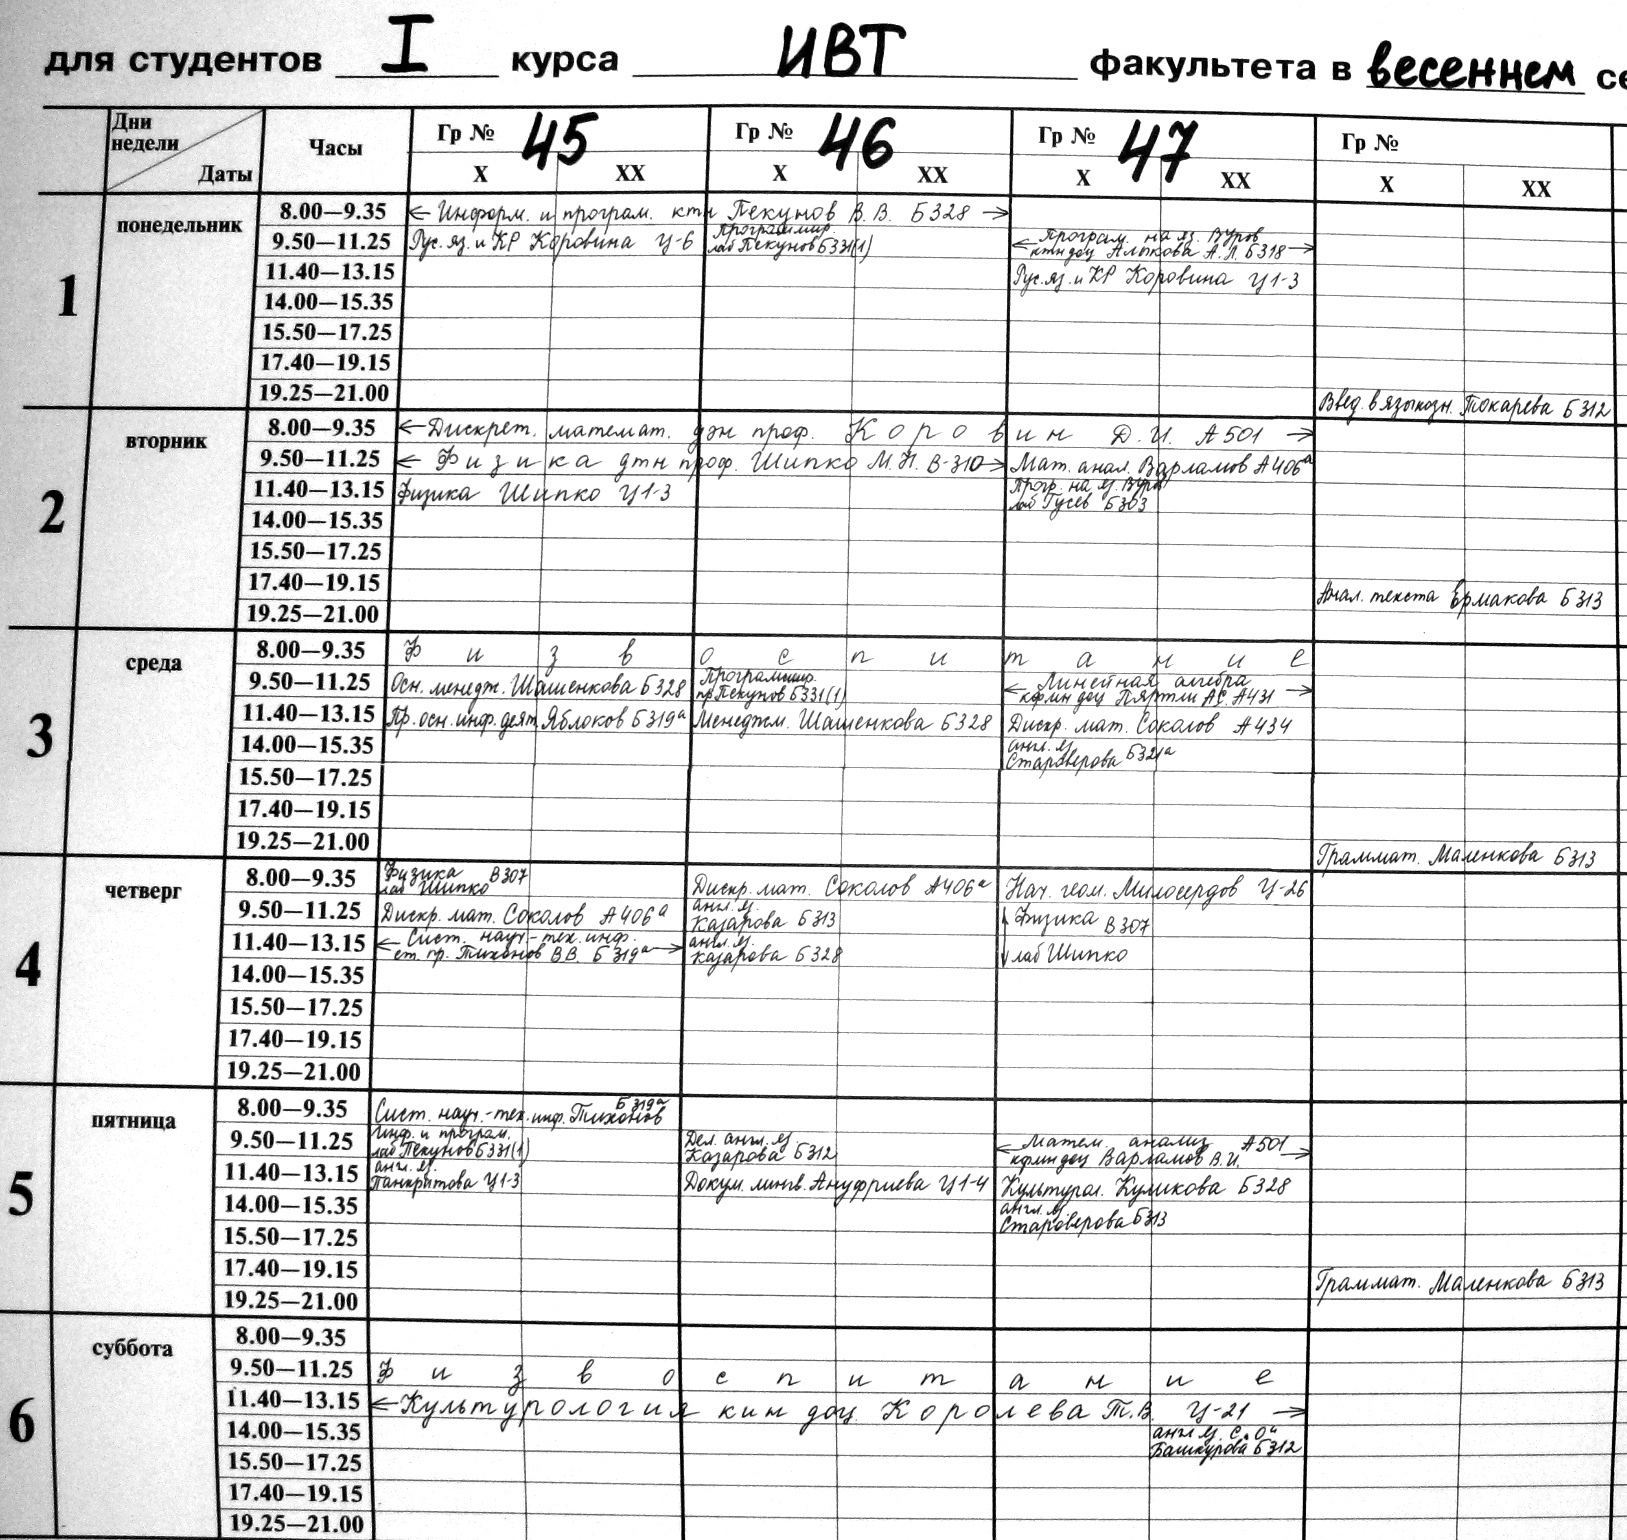 для студентов I курса ИВТ факультета в весеннем се
Дни недели Даты Часы Гр № 45 Гр № 46 Гр № 47 Гр №
X XX X XX X XX X XX
1 понедельник
8.00—9.35 Информ. и програм. ктн Пекунов В.В. Б328
9.50—11.25 Рус. яз. и КР Коровина Ц-6 Программир. лаб Пекунов Б331(1) Програм. на яз. В.Уров ктн доц Алыкова А.Л. Б318
11.40—13.15 Рус. яз. и КР Коровина Ц1-3
14.00—15.35
15.50—17.25
17.40—19.15
19.25—21.00 Введ. в языкозн. Токарева Б312
2 вторник
8.00—9.35 Дискрет. математ. дэн проф. Коровин Д.И. А501
9.50—11.25 Физика дтн проф. Шипко М.Н. В-310 Мат. анал. Варламов А406а
11.40—13.15 Физика Шипко Ц1-3 Прогр. на яз. В.Ур. лаб Гусев Б303
14.00—15.35
15.50—17.25
17.40—19.15 Анал. текста Ермакова Б313
19.25—21.00
3 среда
8.00—9.35 Физвоспитание
9.50—11.25 Осн. менедж. Шашенкова Б328 Программир. пр. Пекунов Б331(1) Линейная алгебра кфмн доц Пяртли А.С. А431
11.40—13.15 Пр. осн. инф. деят. Яблоков Б319а Менеджм. Шашенкова Б328 Дискр. мат. Соколов А434
14.00—15.35 англ. яз Староверова Б321а
15.50—17.25
17.40—19.15
19.25—21.00 Граммат. Маленкова Б313
4 четверг
8.00—9.35 Физика В307 лаб Шипко Дискр. мат. Соколов А406а Нач. геом. Милосердов Ц-26
9.50—11.25 Дискр. мат. Соколов А406а англ. яз. Казарова Б313 Физика В307
11.40—13.15 Сист. науч.-тех. инф. ст. пр. Тихонов В.В. Б319а англ. яз. Казарова Б328 лаб Шипко
14.00—15.35
15.50—17.25
17.40—19.15
19.25—21.00
5 пятница
8.00—9.35 Сист. науч.-тех. инф. Тихонов Б319а
9.50—11.25 Инф. и програм. лаб Пекунов Б331(1) Дел. англ. яз Казарова Б312 Матем. анализ А501 кфмн доц Варламов В.И.
11.40—13.15 англ. яз. Панкратова Ц1-3 Докум. лингв. Ануфриева Ц1-4 Культурол. Куликова Б328
14.00—15.35 англ. яз. Староверова Б313
15.50—17.25
17.40—19.15 Граммат. Маленкова Б313
19.25—21.00
6 суббота
8.00—9.35
9.50—11.25 Физвоспитание
11.40—13.15 Культурология кин доц. Королева Т.В. Ц-21
14.00—15.35 англ яз. Башкурова Б312
15.50—17.25
17.40—19.15
19.25—21.00